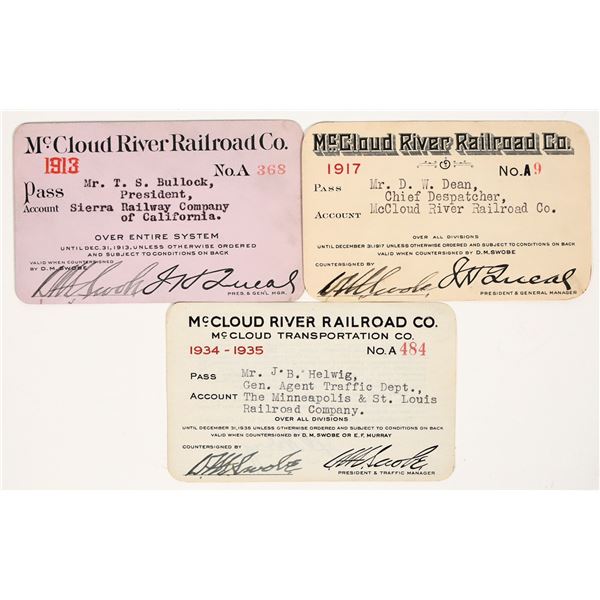 McCloud River Railroad Co.
1913 No. A 368
Pass Mr. T. S. Bullock,
President,
Account Sierra Railway Company
of California.
OVER ENTIRE SYSTEM
UNTIL DEC. 31, 1913, UNLESS OTHERWISE ORDERED
AND SUBJECT TO CONDITIONS ON BACK
VALID WHEN COUNTERSIGNED BY
BY D.M. SWOBE
D M Swobe J H Queal
PRES. & GEN'L MGR.
McCloud River Railroad Co.
1917 No. A 9
PASS Mr. D. W. Dean,
Chief Despatcher,
ACCOUNT McCloud River Railroad Co.
OVER ALL DIVISIONS
UNTIL DECEMBER 31, 1917 UNLESS OTHERWISE ORDERED AND SUBJECT TO CONDITIONS ON BACK
VALID WHEN COUNTERSIGNED BY D.M. SWOBE
COUNTERSIGNED BY
D M Swobe J H Queal
PRESIDENT & GENERAL MANAGER
McCLOUD RIVER RAILROAD CO.
McCLOUD TRANSPORTATION CO.
1934 - 1935 No. A 484
PASS Mr. J. B. Helwig,
Gen. Agent Traffic Dept.,
ACCOUNT The Minneapolis & St. Louis
Railroad Company.
OVER ALL DIVISIONS
UNTIL DECEMBER 31, 1935 UNLESS OTHERWISE ORDERED AND SUBJECT TO CONDITIONS ON BACK
VALID WHEN COUNTERSIGNED BY D. M. SWOBE OR E. F. MURRAY
COUNTERSIGNED BY
D M Swobe D M Swobe
PRESIDENT & TRAFFIC MANAGER